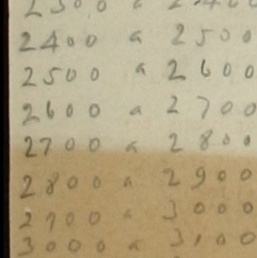 2300 a 2400
2400 a 2500
2500 a 2600
2600 a 2700
2700 a 2800
2800 a 2900
2900 a 3000
3000 a 3100